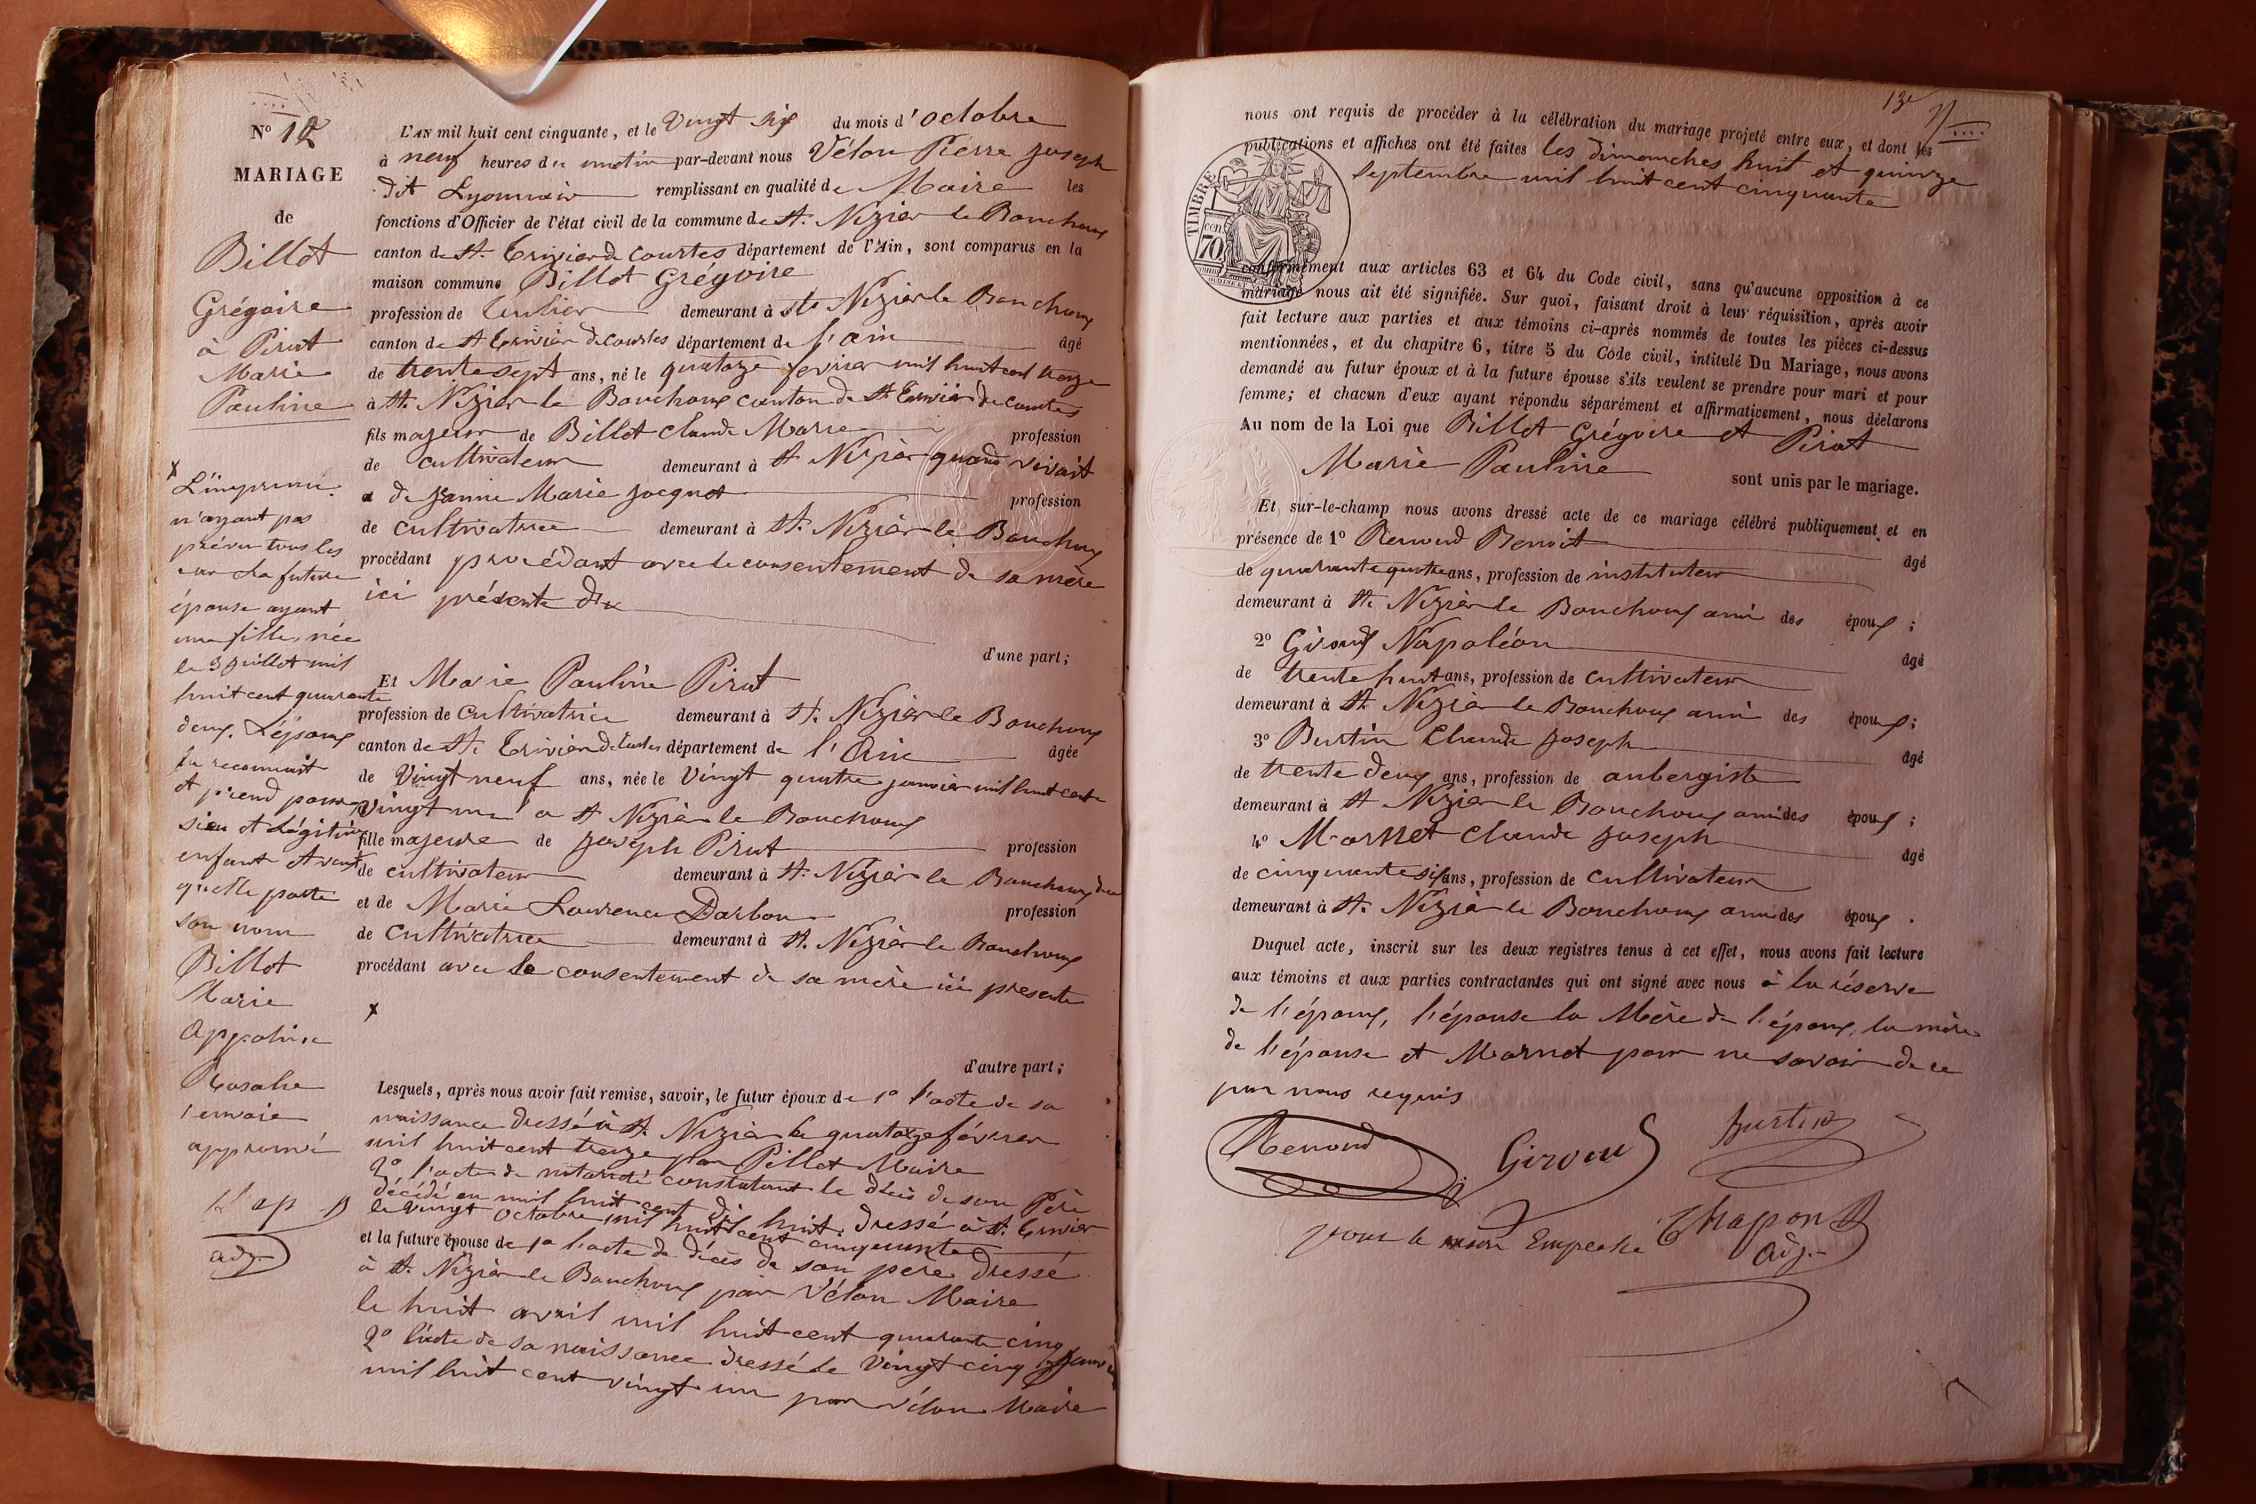 N° 12
MARIAGE
de
Billot
Grégoire
à Pirat
Marie
Pauline
L'AN mil huit cent cinquante, et le Vingt six du mois d'octobre
à neuf heures du matin par-devant nous Vélon Pierre Joseph
dit Lyonnais remplissant en qualité de Maire les
fonctions d'Officier de l'état civil de la commune de St. Nizier le Bouchoux
canton de St. Trivier de Courtes département de l'Ain, sont comparus en la
maison commune Billot Grégoire
profession de demeurant à St. Nizier le Bouchoux
canton de St Trivier de Courtes département de l'ain âgé
de trente sept ans, né le quatorze fevrier mil huit cent treize
à St. Nizier le Bouchoux canton de St Trivier de Courtes
fils majeur de Billot Claude Marie profession
de cultivateur demeurant à St Nizier quand vivait
et de Jeanne Marie Jacquet profession
de cultivatrice demeurant à St. Nizier le Bouchoux
procédant procédant avec le consentement de sa mère
ici présente
d'une part;
Et Marie Pauline Pirat
profession de Cultivatrice demeurant à St. Nizier le Bouchoux
canton de St. Trivier de Courtes département de l'Ain âgée
de Vingt neuf ans, née le Vingt quatre janvier mil huit cent
vingt un à St Nizier le Bouchoux
fille majeure de Joseph Pirat profession
de cultivateur demeurant à St. Nizier le Bouchoux
et de Marie Laurence Darbon profession
de Cultivatrice demeurant à St. Nizier le Bouchoux
procédant avec le consentement de sa mère ici présente
x
d'autre part;
Lesquels, après nous avoir fait remise, savoir, le futur époux de 1° l'acte de sa
naissance dressé à St. Nizier le quatorze février
mil huit cent treize par Pillet Maire
2° l'acte de notoriété constatant le décès de son Père
décédé en mil huit cent dix huit, dressé à St. Trivier
le vingt octobre mil huit cent cinquante
et la future épouse de 1° l'acte de décès de son pere dressé
à St. Nizier le Bouchoux par Vélon Maire
le huit avril mil huit cent quarante cinq
2° l'acte de sa naissance dressé le Vingt cinq Janvier
mil huit cent vingt un par Vélon Maire
x
L'imprimé
n'ayant pas
prévu tous les
cas la future
épouse ayant
une fille, née
le 3 juillet mil
huit cent quarante
deux. L'époux
la reconnait
et prend pour
sien et légitime
enfant et veut
qu'elle porte
son nom
Billot
Marie
Appoline
Rosalie
renvoie
approuvé
adj.
13e
nous ont requis de procéder à la célébration du mariage projeté entre eux, et dont les
publications et affiches ont été faites les dimanches huit et quinze
Septembre mil huit cent cinquante
TIMBRE
70 cen
conformément aux articles 63 et 64 du Code civil, sans qu'aucune opposition à ce
mariage nous ait été signifiée. Sur quoi, faisant droit à leur réquisition, après avoir
fait lecture aux parties et aux témoins ci-après nommés de toutes les pièces ci-dessus
mentionnées, et du chapitre 6, titre 5 du Code civil, intitulé Du Mariage, nous avons
demandé au futur époux et à la future épouse s'ils veulent se prendre pour mari et pour
femme; et chacun d'eux ayant répondu séparément et affirmativement, nous déclarons
Au nom de la Loi que Billot Grégoire et Pirat
Marie Pauline sont unis par le mariage.
Et sur-le-champ nous avons dressé acte de ce mariage célébré publiquement et en
présence de 1° Renoud Benoit âgé
de quarante quatre ans, profession de instituteur
demeurant à St. Nizier le Bouchoux ami des époux;
2° Giroud Napoléon âgé
de trente huit ans, profession de cultivateur
demeurant à St. Nizier le Bouchoux ami des époux;
3° Burtin Claude Joseph âgé
de trente deux ans, profession de aubergiste
demeurant à St Nizier le Bouchoux ami des époux;
4° Marnet Claude Joseph âgé
de cinquante six ans, profession de cultivateur
demeurant à St. Nizier le Bouchoux ami des époux.
Duquel acte, inscrit sur les deux registres tenus à cet effet, nous avons fait lecture
aux témoins et aux parties contractantes qui ont signé avec nous à la réserve
de l'époux, l'épouse la Mère de l'époux, la mère
de l'épouse et Marnet pour ne savoir de ce
par nous requis
Renoud Giroud Burtin
pour le maire Empeché Chapon
adj.